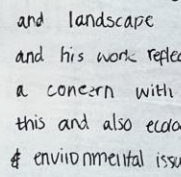 and landscape
and his work reflec
a concern with
this and also ecolo
& environmental issu